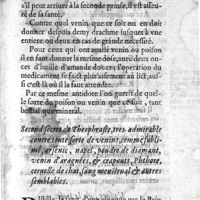 s'il peut arriuer à la seconde prinse, il est asseu-
ré de sa santé.
Contre quel venin que ce soit on en doit
donner depuis demy drachme iusques à vne
entiere ou deux en cas de grande necessité.
Pour ceux qui ont auallé venin ou poison
il en faut donner la mesme dose, auec deux on-
ces d'huille d'amande douce; l'operation du
medicament se faict plus aisement au lict, aussi
c'est là où il la faut attendre.
Par ce mesme antidote l'on guerit de quel-
le sorte de poison ou venin que ce soit, tant
bestial que mineral.
Second secret de Theophraste, tres-admirable
contre toute sorte de venins, comme subli-
mé, arsenic, napel, poudre de diamant,
venin d'aragnées, & crapauts, Phthore,
ceruelle de chat, sang menstrual & autres
semblables.